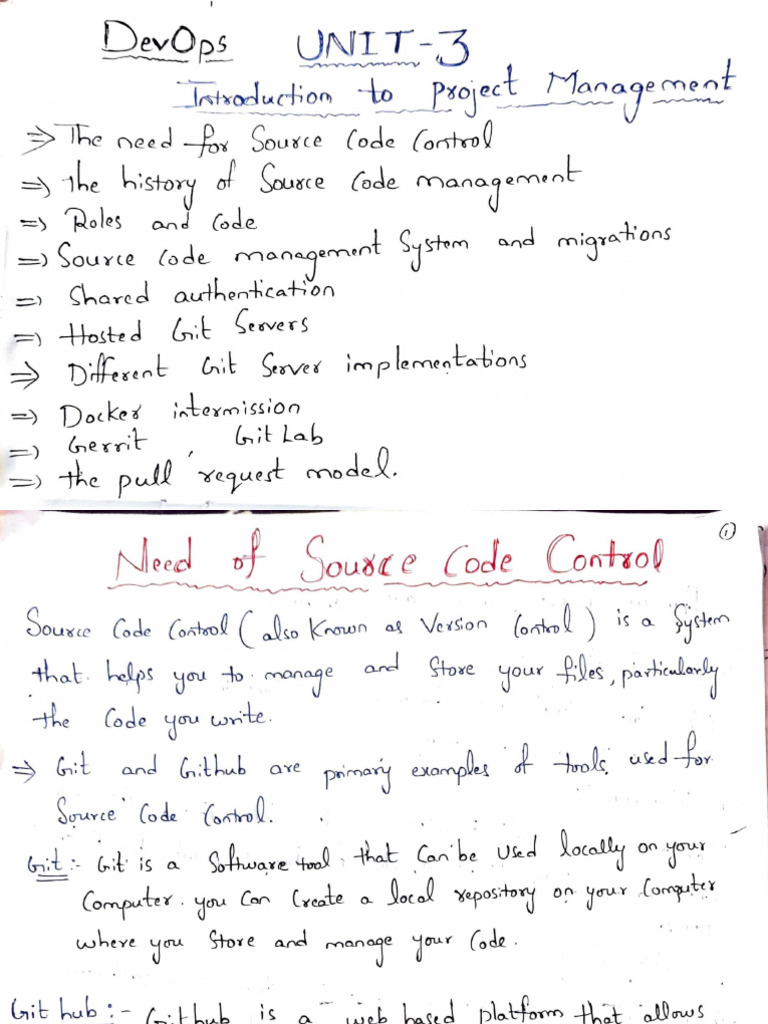 DevOps UNIT-3
Introduction to Project Management
=> The need for Source Code Control
=> the history of Source Code management
=> Roles and Code
=> Source Code management System and migrations
=> Shared authentication
=> Hosted Git Servers
=> Different Git Server implementations
=> Docker intermission
=> Gerrit , GitLab
=> the pull request model.
①
Need of Source Code Control
Source Code Control (also Known as Version Control) is a System
that helps you to manage and Store your files, particularly
the Code you write.
=> Git and Github are primary examples of tools used for
Source Code Control.
Git:- Git is a Software tool that Can be used locally on your
Computer. you Can Create a local repository on your Computer
where you Store and manage your Code.
Git hub:- Github is a web based platform that allows